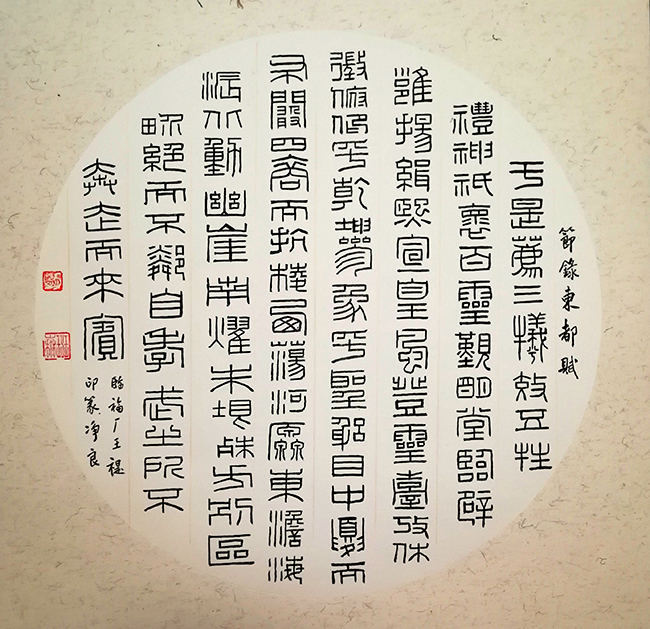 節錄東都賦
于是薦三犧效五牲
禮神祇褱百靈覲明堂臨辟
雝揚緝熙宣皇風登靈臺考休
徵俯仰乎乾坤參象乎聖躬目中夏而
布闞四裔而抗棱西蕩河源東澹海
漘北動幽崖南燿朱垠殊方別區
畍絕而不鄰自孝武之所不
奔走而來賓
臨福厂王禔
印篆净良